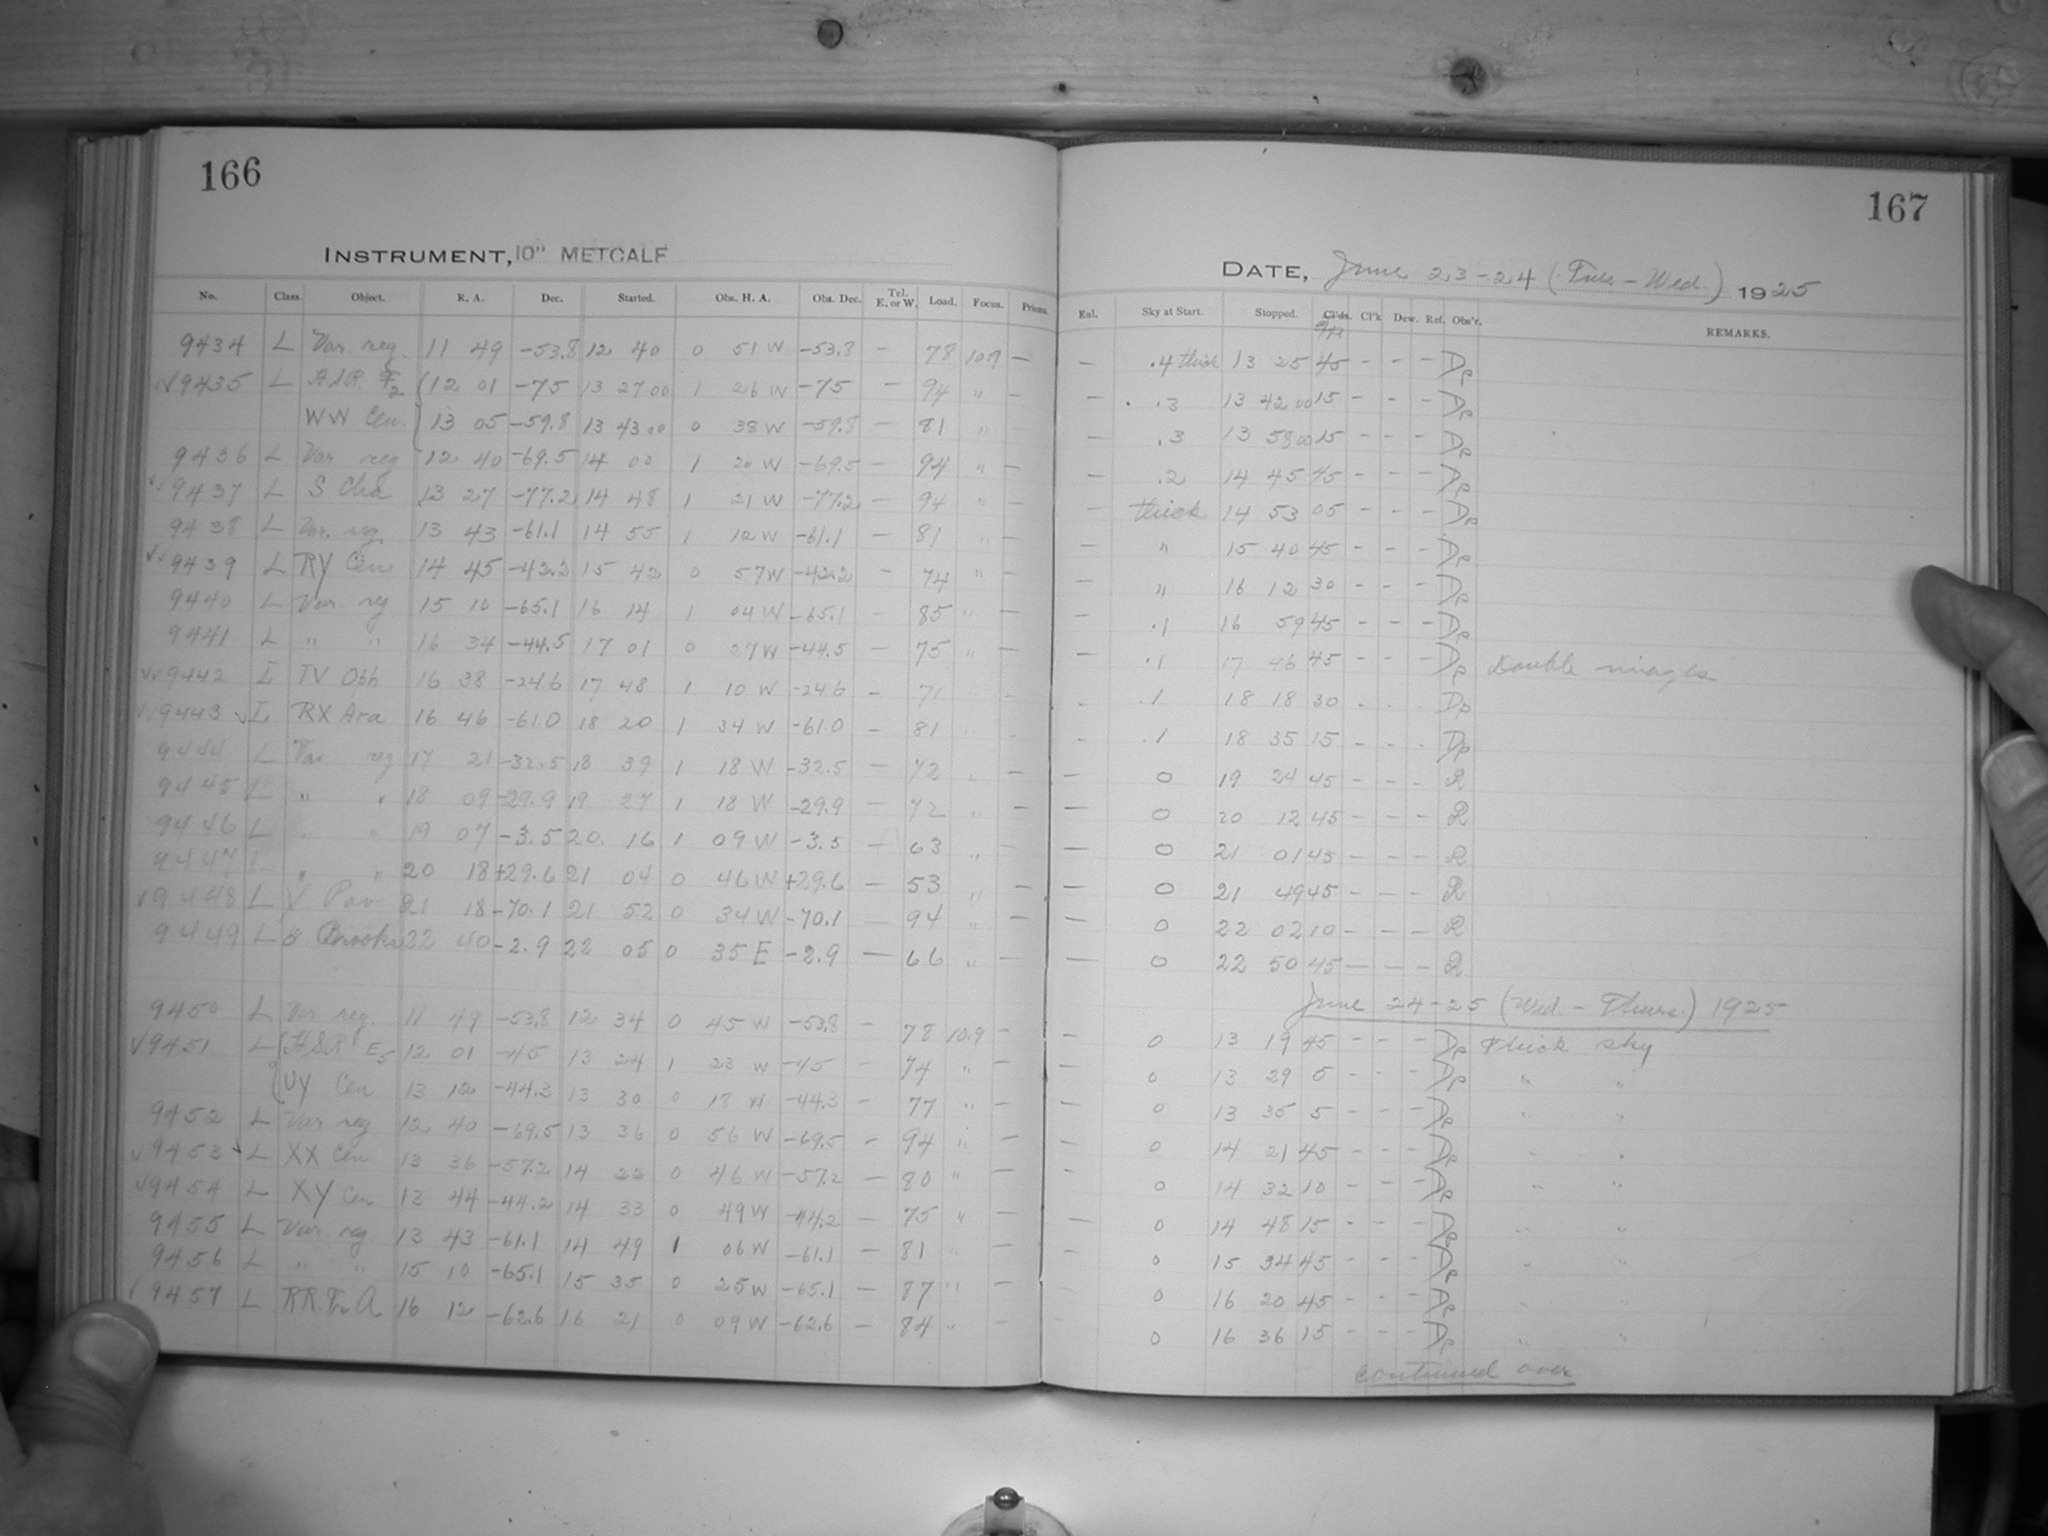 166
INSTRUMENT, 10" METCALF
No. Class. Object. R. A. Dec. Started. Obs. H. A. Obs. Dec. Tel. E. or W. Load. Focus. Prisms.
9434 L Var. reg. 11 49 -53.8 12 40 0 51 W -53.8 - 78 10.9 -
√√9435 L HSR F2 (12 01 -75 13 27 00 1 26 W -75 - 94 " -
WW Cen. 13 05 -59.8 13 43 00 0 38 W -59.8 - 81 " -
9436 L Var reg 12 40 -69.5 14 00 1 20 W -69.5 - 94 " -
√√9437 L S Cha 13 27 -77.2 14 48 1 21 W -77.2 - 94 " -
9438 L Var. reg. 13 43 -61.1 14 55 1 12 W -61.1 - 81 " -
√√9439 L RY Cen 14 45 -42.2 15 42 0 57 W -42.2 - 74 " -
9440 L Var. reg 15 10 -65.1 16 14 1 04 W -65.1 - 85 " -
9441 L " " 16 34 -44.5 17 01 0 27 W -44.5 - 75 " -
√√9442 L TV Oph 16 38 -24.6 17 48 1 10 W -24.6 - 71 " -
√√9443 √ L RX Ara 16 46 -61.0 18 20 1 34 W -61.0 - 81
9444 L Var reg 17 21 -32.5 18 39 1 18 W -32.5 - 72 " -
9445 L " " 18 09 -29.9 19 27 1 18 W -29.9 - 72 " -
9446 L " " 19 07 -3.5 20 16 1 09 W -3.5 - 63 " -
9447 L " " 20 18 +29.6 21 04 0 46 W +29.6 - 53 " -
√9448 L Y Pav 21 18 -70.1 21 52 0 34 W -70.1 - 94 " -
9449 L Brooks 22 40 -2.9 22 05 0 35 E -2.9 - 66 " -
9450 L Var reg. 11 49 -53.8 12 34 0 45 W -53.8 - 78 10.9 -
√9451 L {HSR E5 12 01 -45 13 24 1 23 W -45 - 74 " -
{UY Cen 13 12 -44.3 13 30 0 18 W -44.3 - 77 " -
9452 L Var reg 12 40 -69.5 13 36 0 56 W -69.5 - 94 " -
√9453 √ L XX Cen 13 36 -57.2 14 22 0 46 W -57.2 - 80 " -
√9454 L XY Cen 13 44 -44.2 14 33 0 49 W -44.2 - 75 " -
9455 L Var. reg 13 43 -61.1 14 49 1 06 W -61.1 - 81 " -
9456 L " " 15 10 -65.1 15 35 0 25 W -65.1 - 87 " -
√9457 L RR Tr A 16 12 -62.6 16 21 0 09 W -62.6 - 84 " -
167
DATE, June 23-24 (Tues. - Wed.) 1925
Enl. Sky at Start. Stopped. Cl'ds. Cl'k Dew. Ref. Obs'r. REMARKS.
- .4 thick 13 25 45 - - - Dp
- .3 13 42 00 15 - - - Dp
- .3 13 58 00 15 - - - Dp
- .2 14 45 45 - - - Dp
- thick 14 53 05 - - - Dp
- " 15 40 45 - - - Dp
- " 16 12 30 - - - Dp
- .1 16 59 45 - - - Dp
- .1 17 46 45 - - - Dp Double images
- .1 18 18 30 - - - Dp
- .1 18 35 15 - - - Dp
- 0 19 24 45 - - - R
- 0 20 12 45 - - - R
- 0 21 01 45 - - - R
- 0 21 49 45 - - - R
- 0 22 02 10 - - - R
- 0 22 50 45 - - - R
June 24-25 (Wed. - Thurs.) 1925
- 0 13 19 45 - - - Dp Thick sky
- 0 13 29 5 - - - Dp " "
- 0 13 35 5 - - - Dp " "
- 0 14 21 45 - - - Dp " "
0 14 32 10 - - - Dp " "
- 0 14 48 15 - - - Dp " "
- 0 15 34 45 - - - Dp " "
0 16 20 45 - - - Dp " "
0 16 36 15 - - - Dp " "
continued over